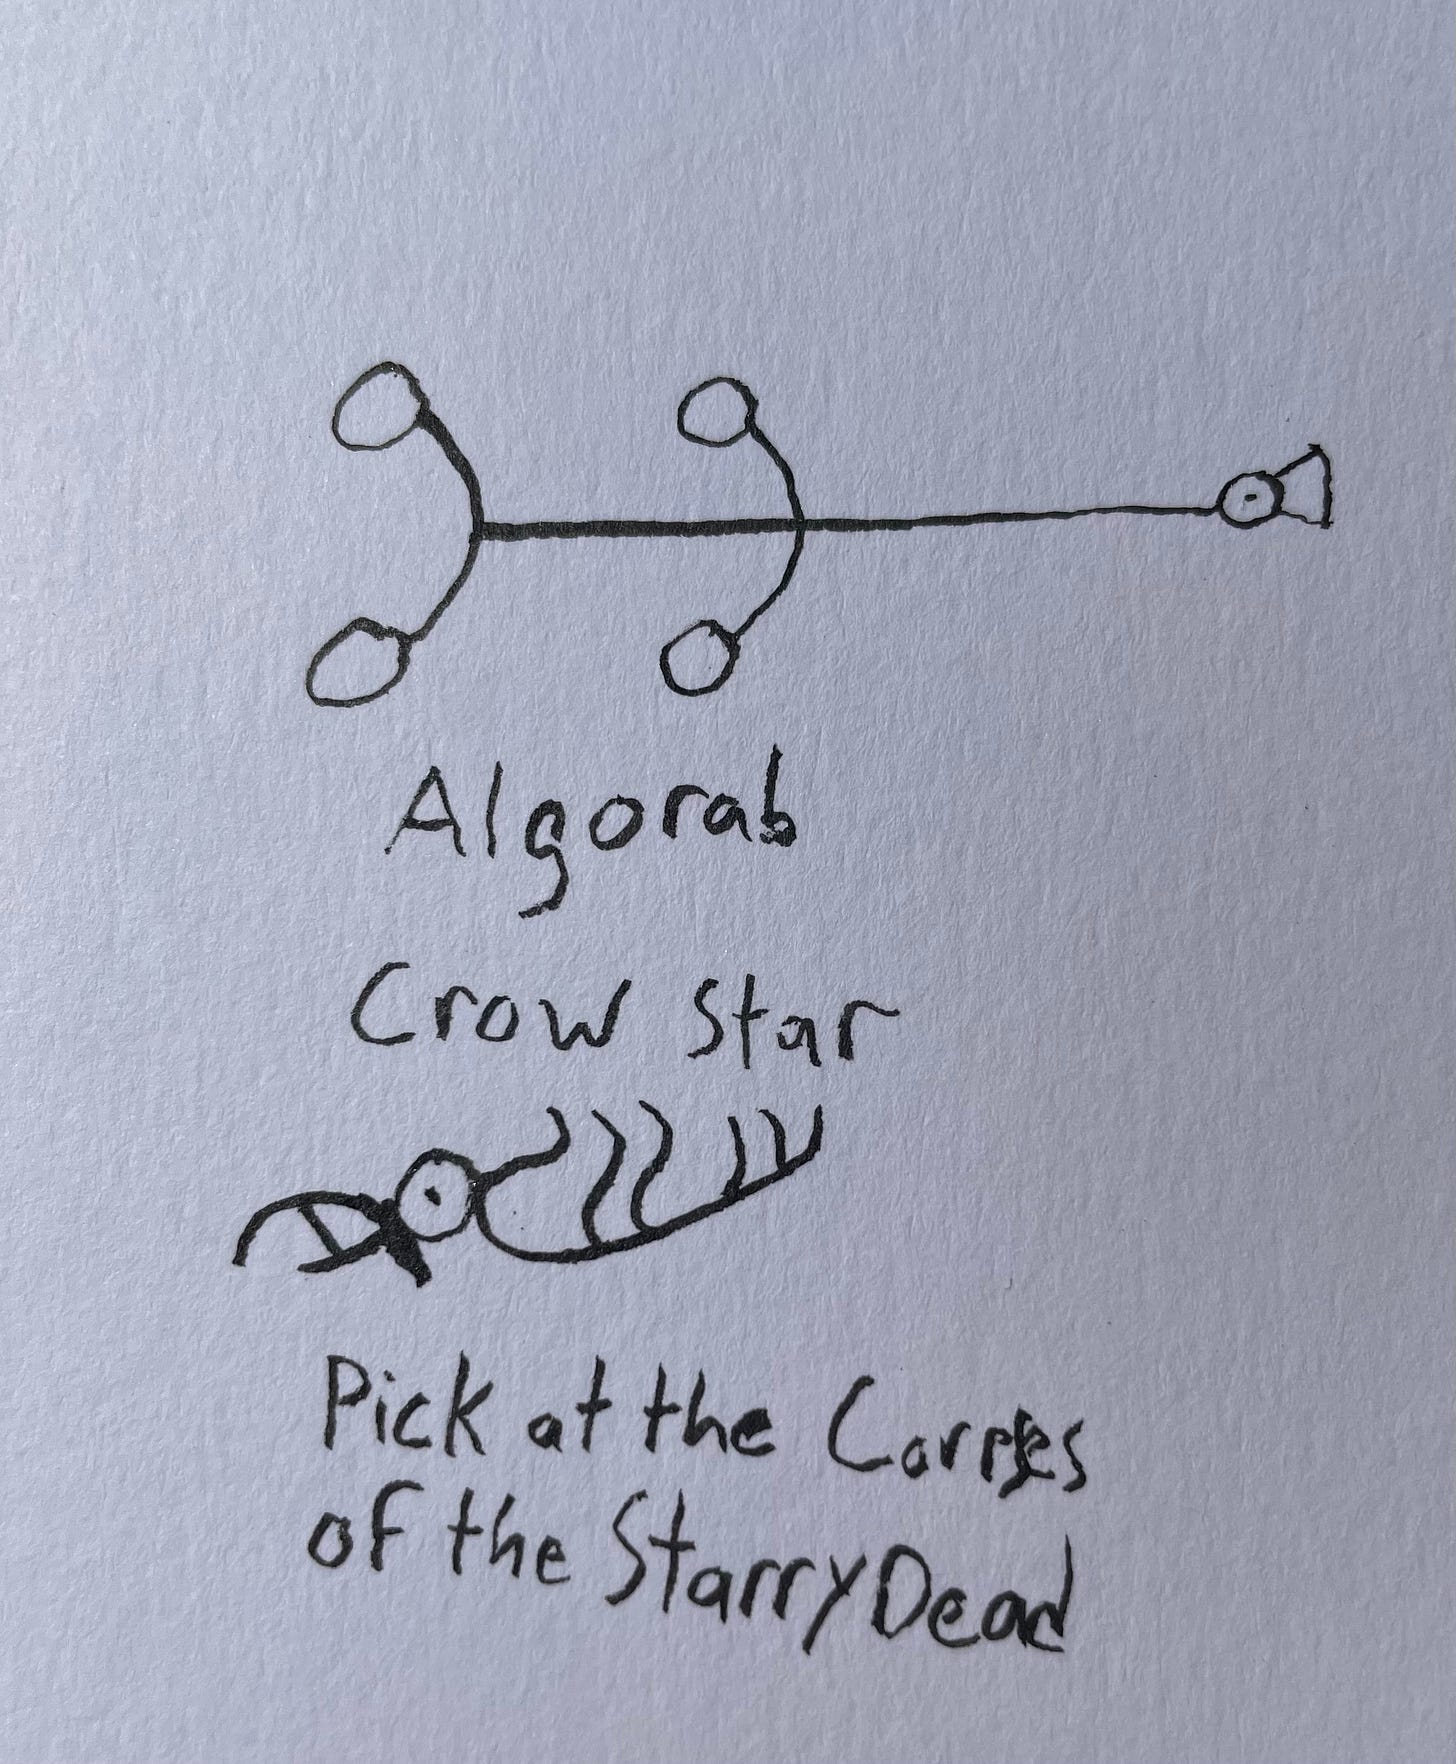 Algorab
Crow Star
Pick at the Corpses
of the Starry Dead